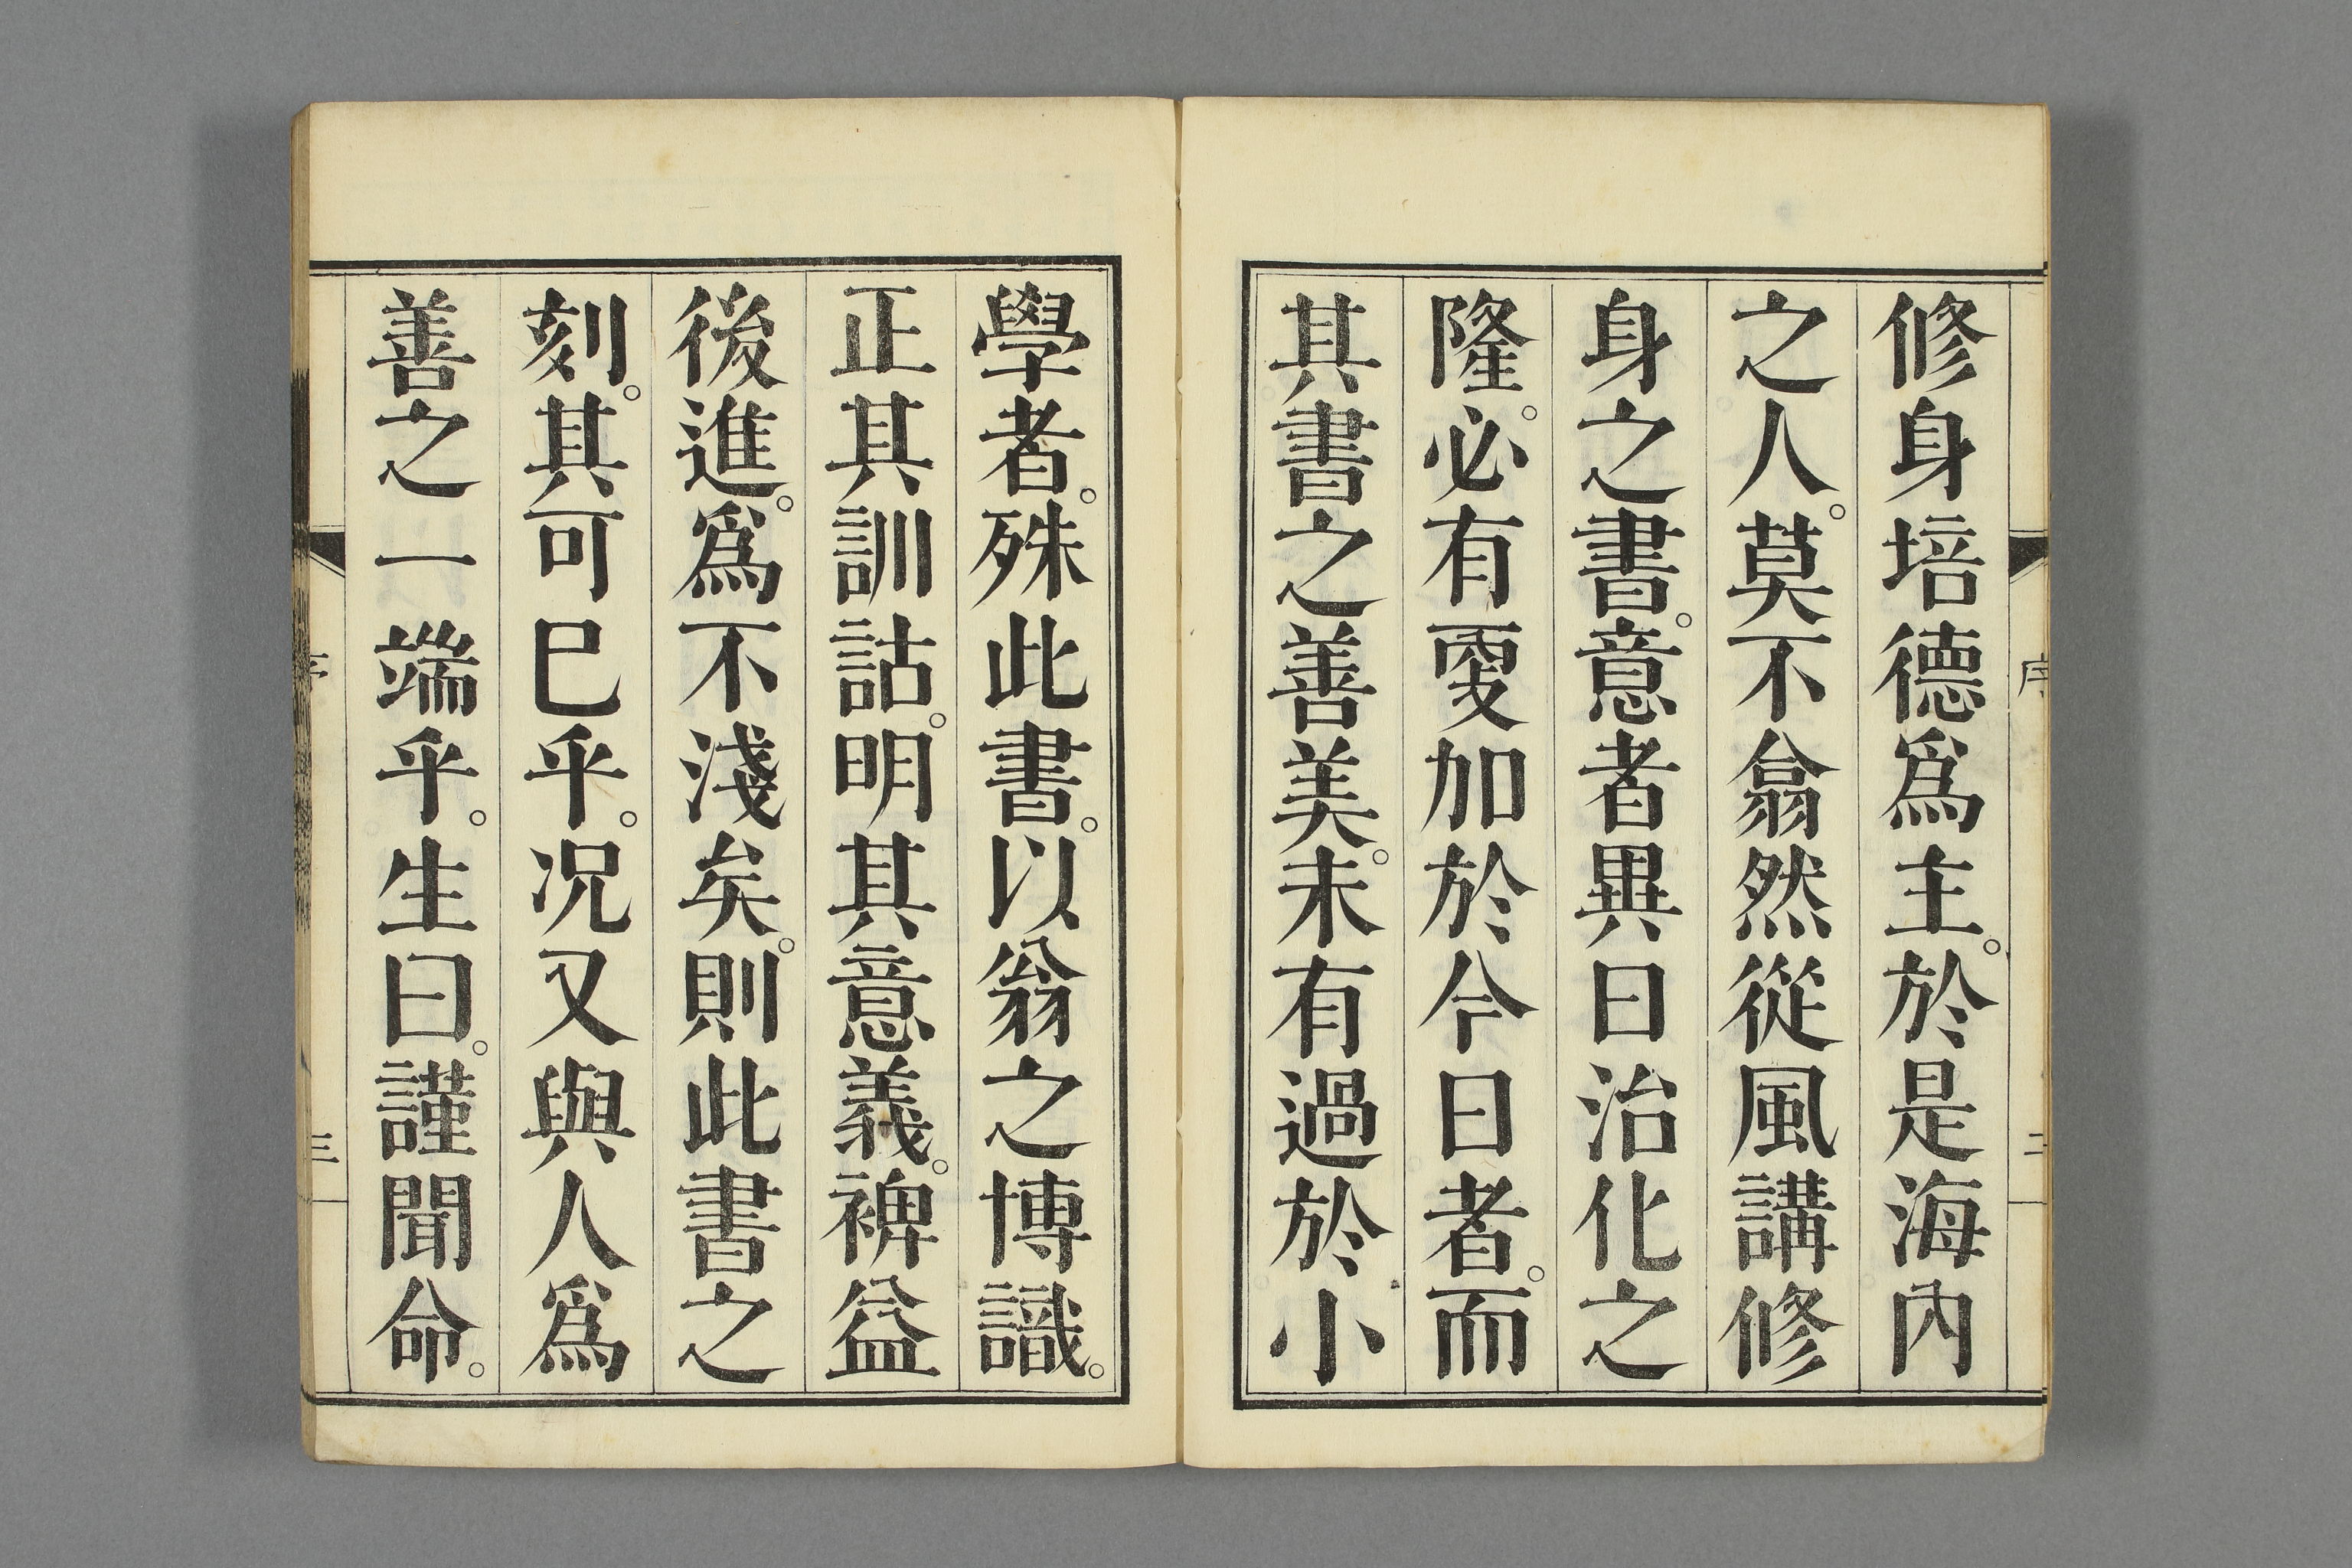 修身培德爲主。於是海內
之人。莫不翕然從風講修
身之書。意者異日治化之
隆。必有更加於今日者。而
其書之善美。未有過於小
學者。殊此書。以翁之博識。
正其訓詁。明其意義。裨益
後進。爲不淺矣。則此書之
刻。其可巳乎。况又與人爲
善之一端乎。生曰。謹聞命。
序
三